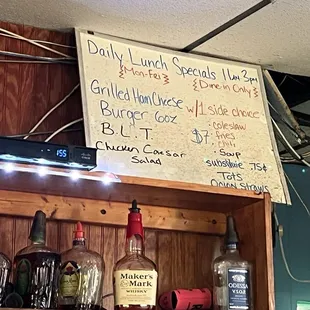 Daily Lunch Specials 11am 3pm
{Mon-Fri} {Dine in Only}
Grilled Ham Cheese
w/1 side choice
Burger 6oz
B.L.T.
$7
Chicken Caesar
Salad
- coleslaw
- fries
- Soup
substitute 75¢
Tots
Onion straws
155
Maker's
Mark
WHISKY
ODESSA
VODKA